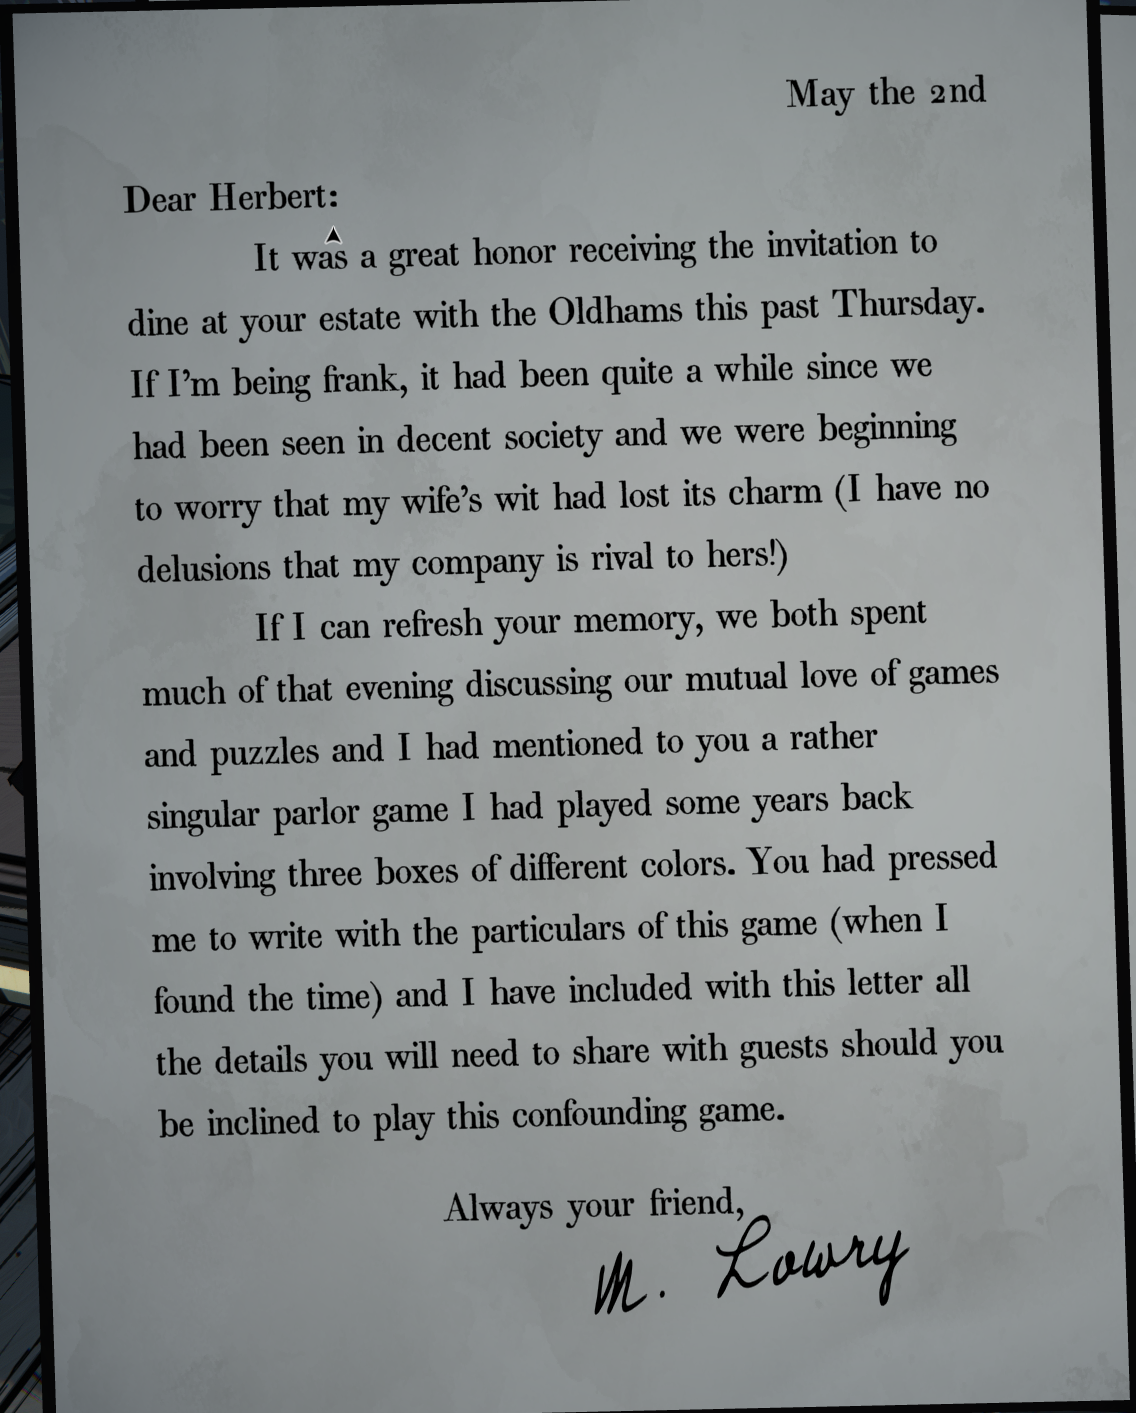 May the 2nd
Dear Herbert:
It was a great honor receiving the invitation to
dine at your estate with the Oldhams this past Thursday.
If I'm being frank, it had been quite a while since we
had been seen in decent society and we were beginning
to worry that my wife's wit had lost its charm (I have no
delusions that my company is rival to hers!)
If I can refresh your memory, we both spent
much of that evening discussing our mutual love of games
and puzzles and I had mentioned to you a rather
singular parlor game I had played some years back
involving three boxes of different colors. You had pressed
me to write with the particulars of this game (when I
found the time) and I have included with this letter all
the details you will need to share with guests should you
be inclined to play this confounding game.
Always your friend,
M. Lowry